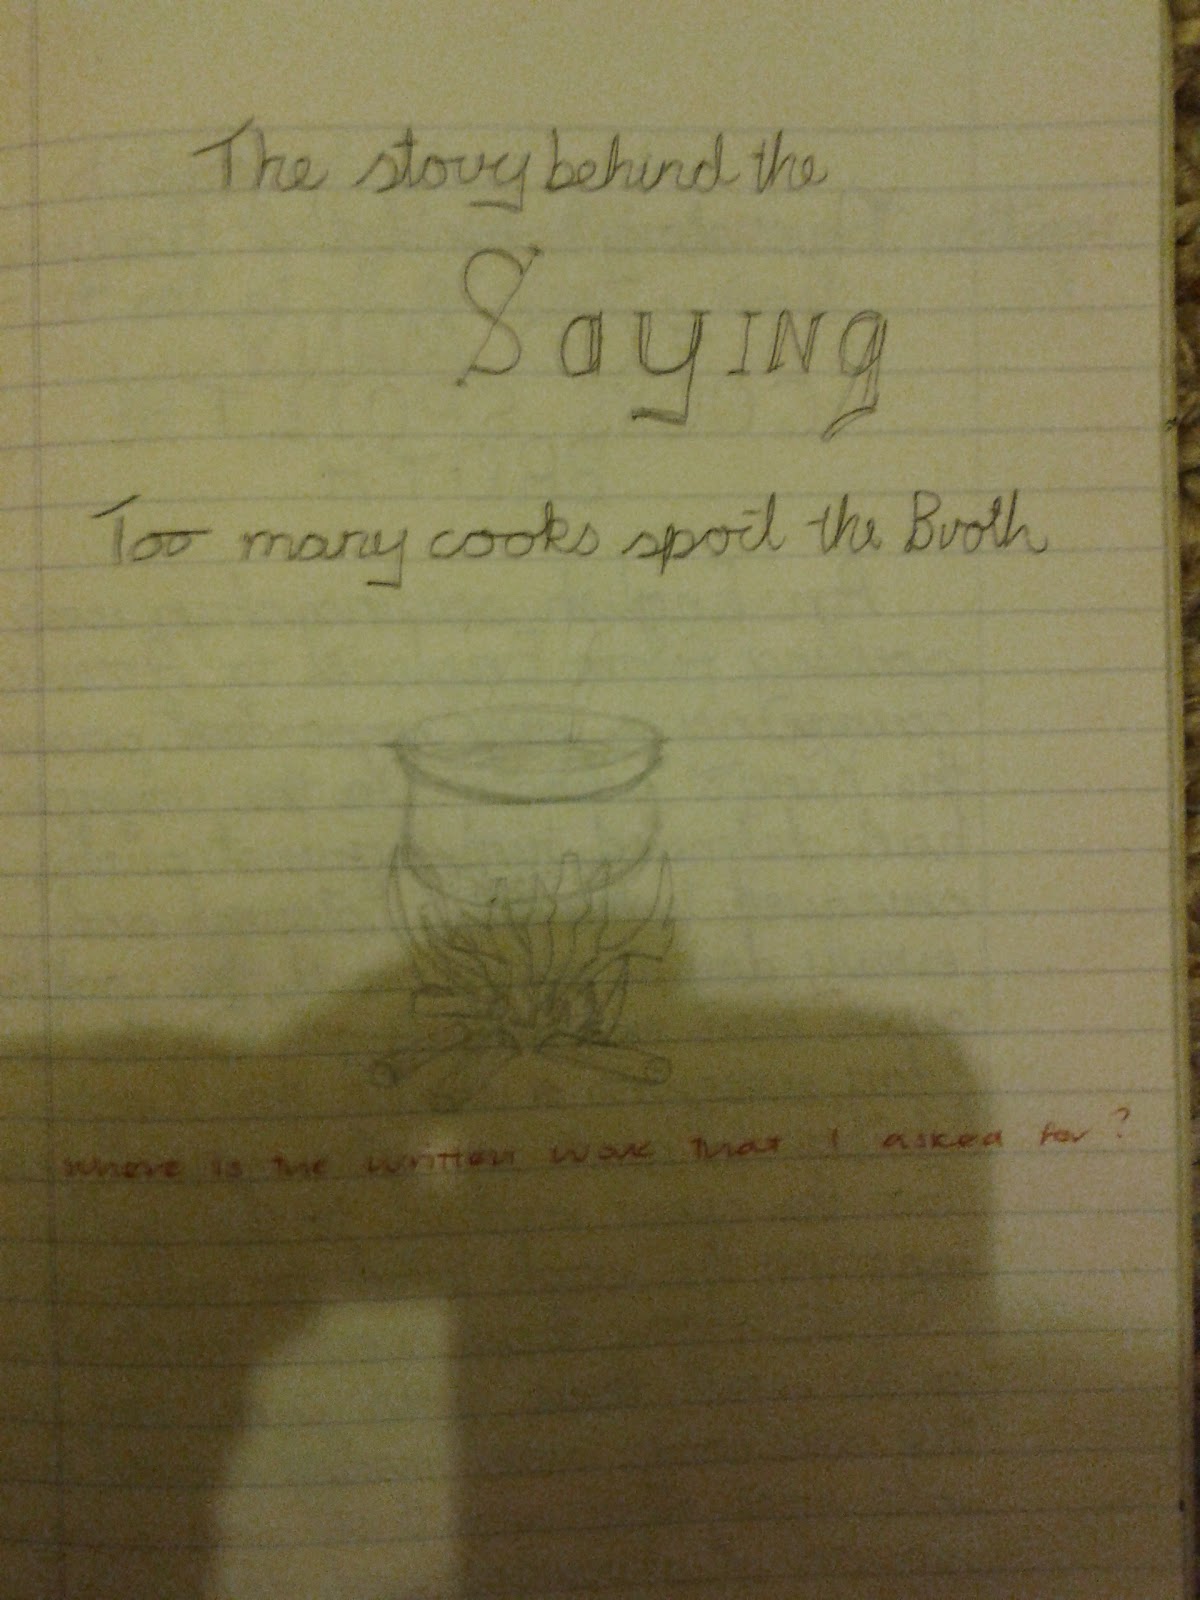 The story behind the
SayINg
Too many cooks spoil the Broth
where is the written work that I asked for?